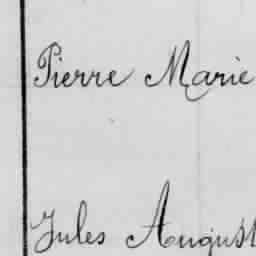 Pierre Marie
Jules August